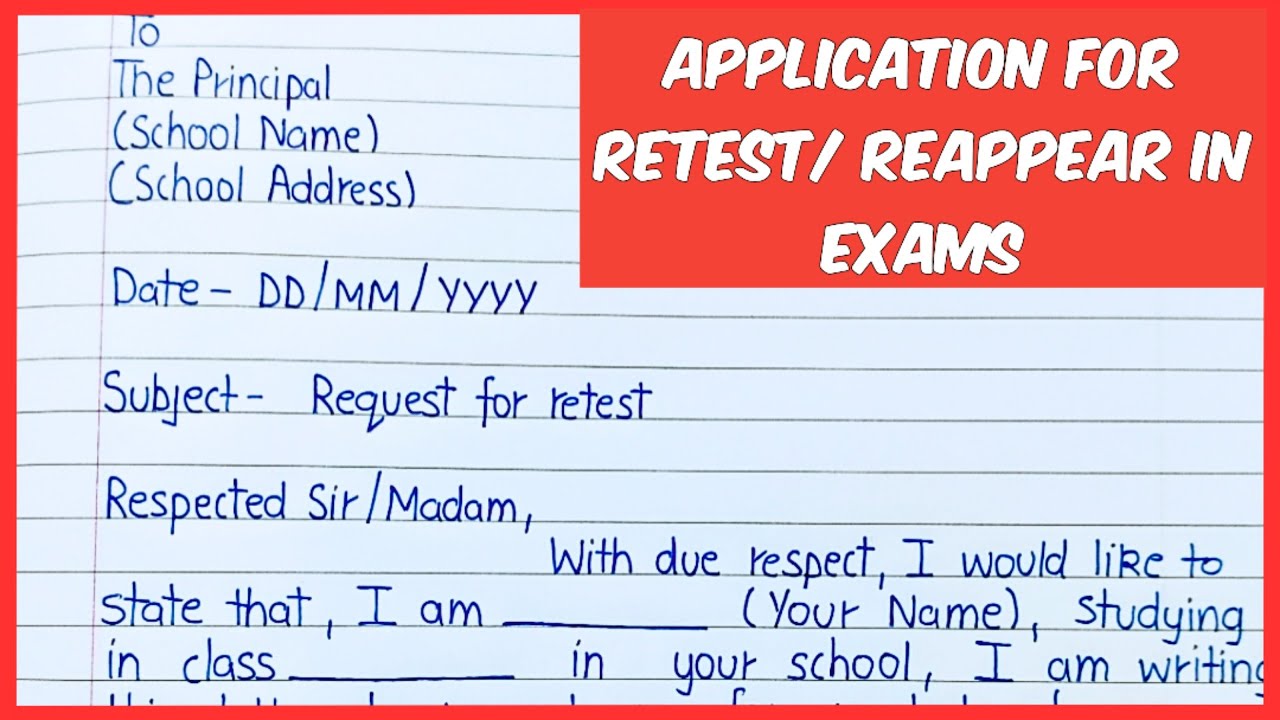 To
The Principal
(School Name)
(School Address)
APPLICATION FOR
RETEST/ REAPPEAR IN
EXAMS
Date - DD/MM/YYYY
Subject - Request for retest
Respected Sir/Madam,
With due respect, I would like to
state that, I am ________ (Your Name), studying
in class ________ in your school, I am writing